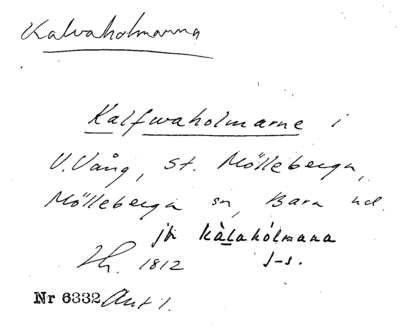 Kalvaholmarna
Kalfwaholmarne i
V. Vång, St. Mölleberga,
Mölleberga sn, Bara hd.
jfr kàlahólmana
1812 s-s.
Nr 6332 Akt 1.